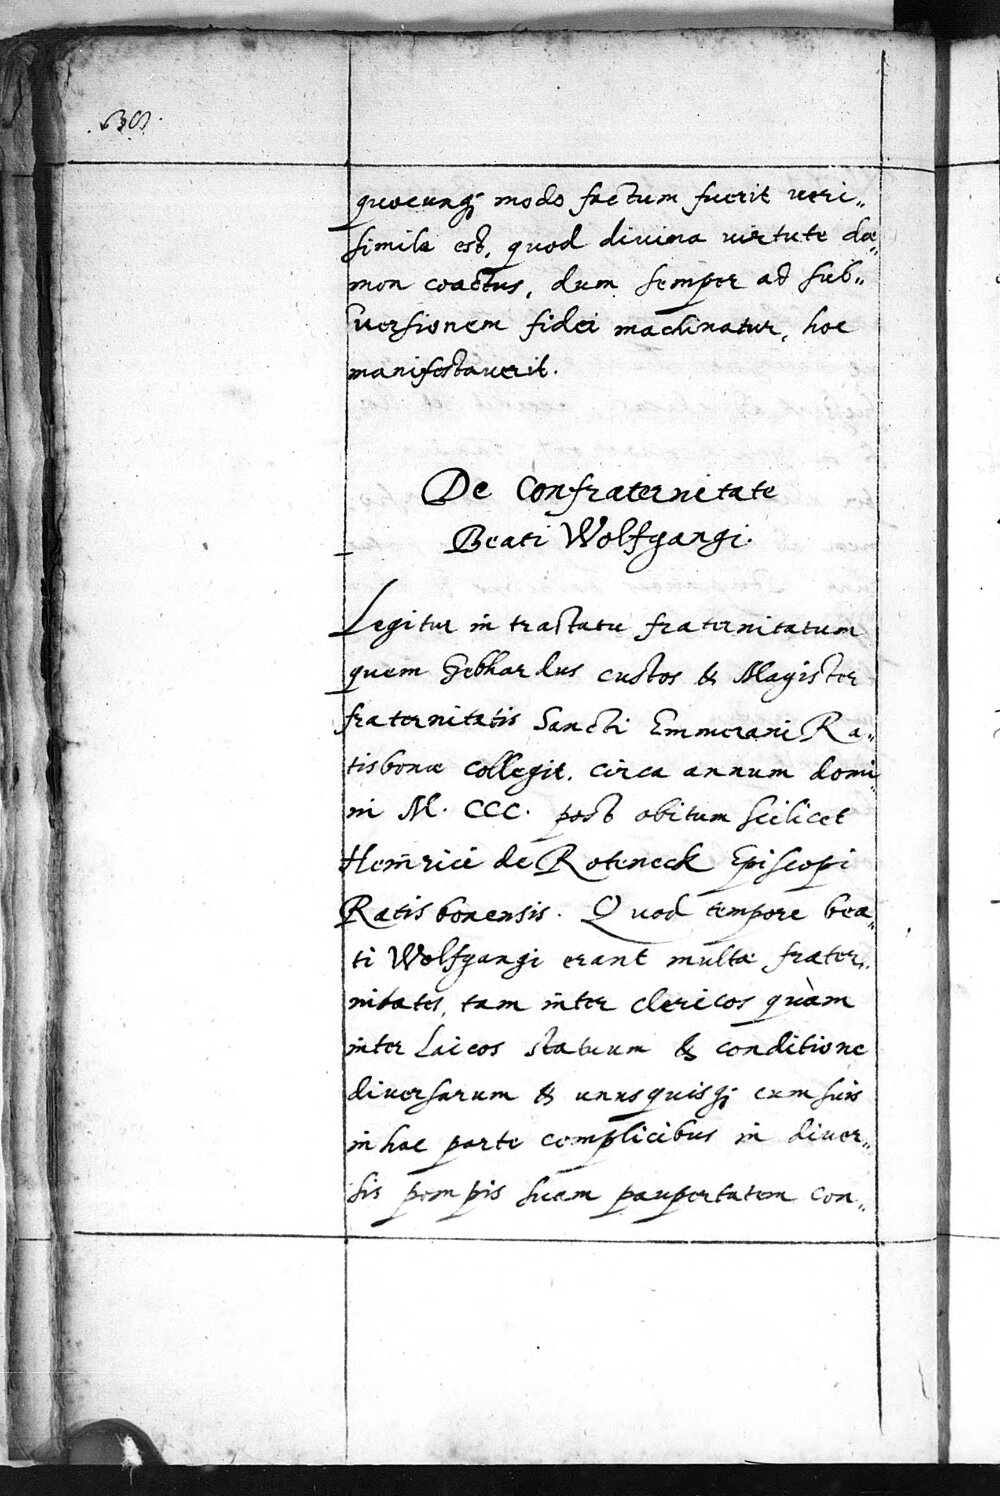 quocunq; modo factum fuerit veri„
simile est, quod divina virtute dæ„
mon coactus, dum semper ad sub„
versionem fidei machinatur, hoc
manifestaverit.
De Confraternitate
Beati Wolfgangi.
Legitur in tractatu fraternitatum
quem Gebhardus custos & Magister
fraternitatis Sancti Emmerani Ra„
tisbonæ collegit. circa annum domi„
ni M. CCC. post obitum scilicet
Heinrici de Roteneck Episcopi
Ratisbonensis. Quod tempore bea„
ti Wolfgangi erant multæ frater„
nitates, tam inter clericos quàm
inter Laicos statuum & conditione
diversarum & unusquisq; cum suis
in hac parte complicibus in diver„
sis pompis suam paupertatem con„